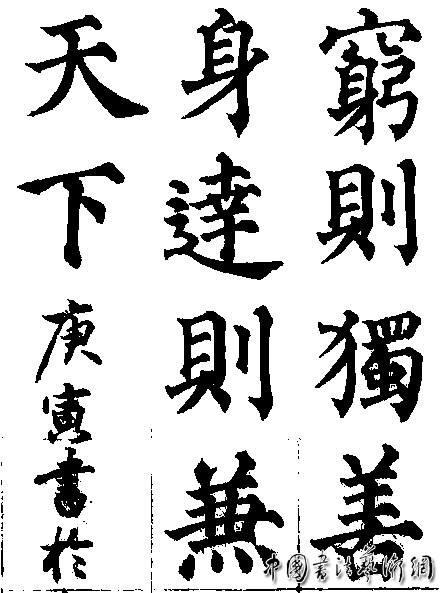 窮則獨美
身達則兼
天下
庚寅書於
中國書法藝術網